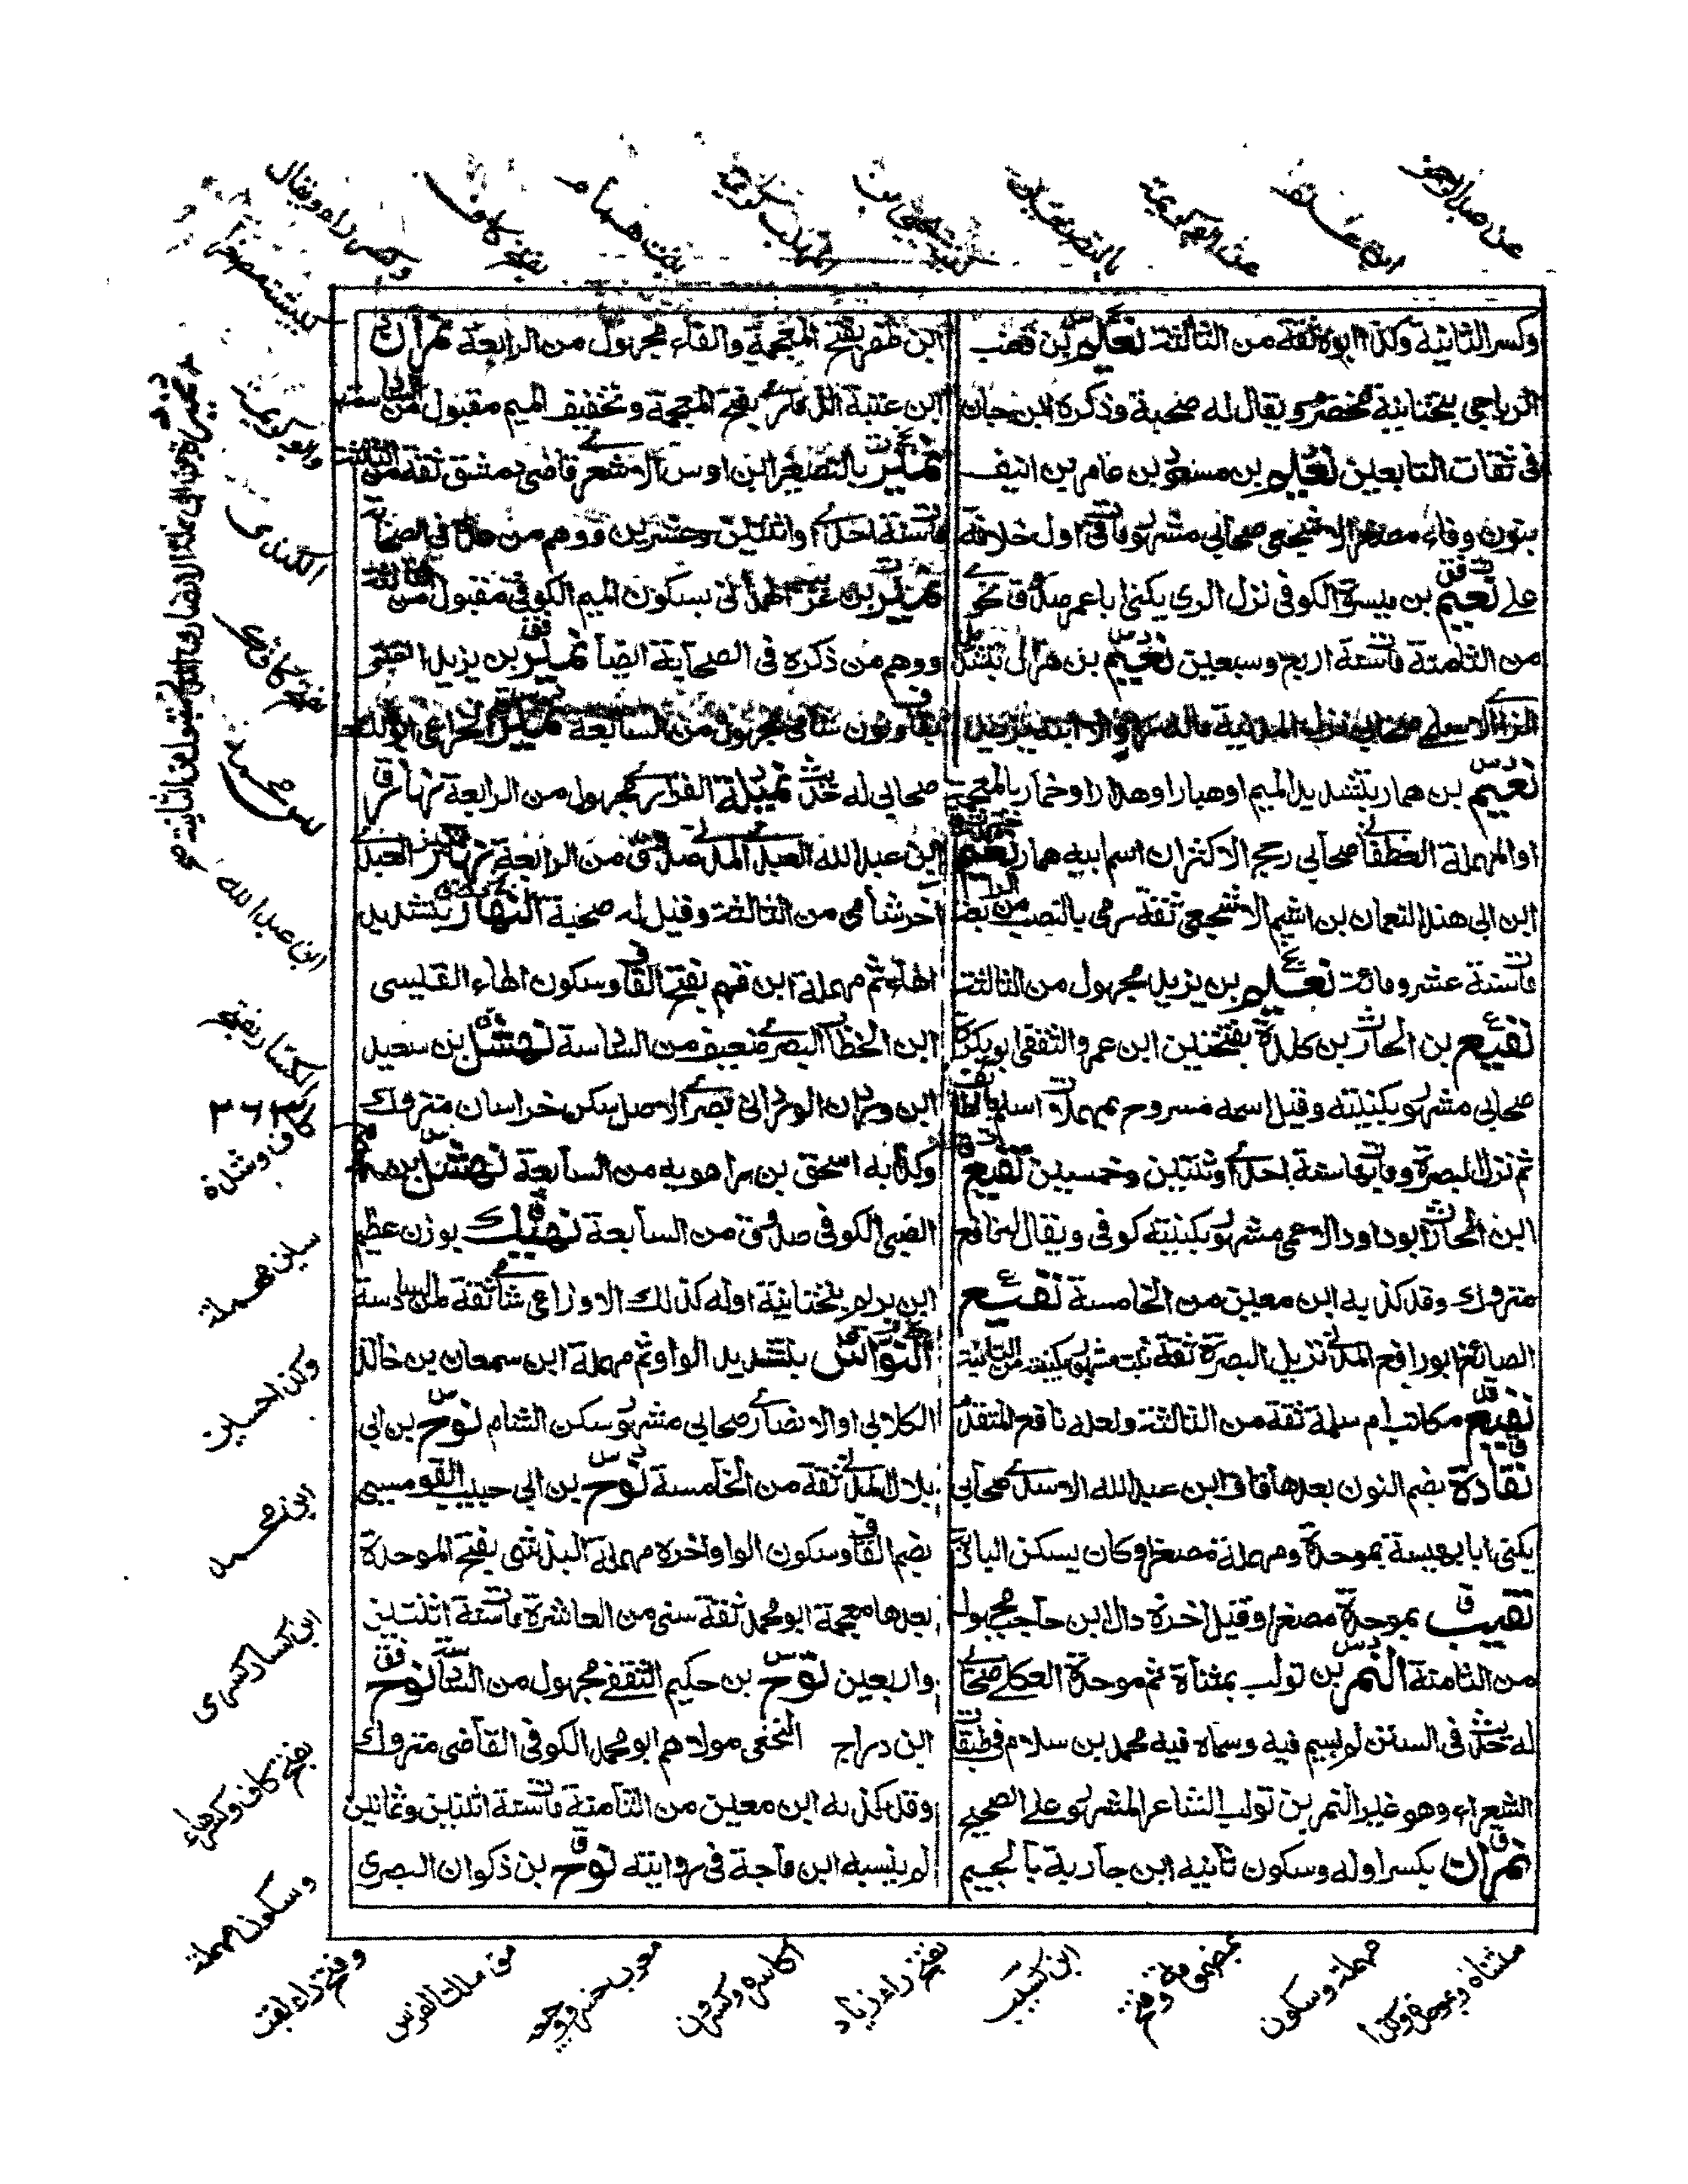 وكسر الثانية وكذا ابوه ثقة من الثالثة نعيم بن قعنب
الرياحي بتحتانية مخضرم ويقال له صحبة وذكره ابن حبان
في ثقات التابعين نعيم بن مسعود بن عامر بن انيف
بنون وفاء مصغرا الاشجعي صحابي مشهور مات في اول خلافة
علي نعيم بن ميسرة الكوفي نزل الري يكنى ابا عمر صدوق نحوي
من الثامنة مات سنة اربع وسبعين نعيم بن هزال بتشديد
الزاي الاسلمي صحابي نزل المدينة ماله راو الا ابنه يزيد
نعيم بن همار بتشديد الميم او هبار او هدار او خمار بالمعجمة
او المهملة الغطفاني صحابي رجح الاكثر ان اسم ابيه همار نعيم
ابن ابي هند النعمان بن اشيم الاشجعي ثقة رمي بالنصب من الرابعة
مات سنة عشر ومائة نعيم بن يزيد مجهول من الثالثة
نفيع بن الحارث بن كلدة بفتحتين ابن عمرو الثقفي ابو بكرة
صحابي مشهور بكنيته وقيل اسمه مسروح بمهملات اسلم بالطائف
ثم نزل البصرة ومات بها سنة احدى او ثنتين وخمسين نفيع
ابن الحارث ابو داود الاعمى مشهور بكنيته كوفي ويقال له نافع
متروك وقد كذبه ابن معين من الخامسة نفيع
الصائغ ابو رافع المدني نزيل البصرة ثقة ثبت مشهور بكنيته من الثانية
نفيع مكاتب ام سلمة ثقة من الثالثة ولعله نافع المتقدم
نقادة بضم النون بعدها قاف ابن عبد الله الاسدي صحابي
يكنى ابا بهيسة بموحدة ومهملة مصغرا وكان يسكن البادية
نقيب بموحدة مصغرا وقيل اخره دال ابن حاجب مجهول
من الثامنة النمر بن تولب بمثناة ثم موحدة العكلي صحابي
له حديث في السنن لم يسم فيه وسماه فيه محمد بن سلام في طبقات
الشعراء وهو غير النمر بن تولب الشاعر المشهور على الصحيح
نمران بكسر اوله وسكون ثانيه ابن جارية بالجيم
ابن ظفر بفتح المعجمة والفاء مجهول من الرابعة نمران
ابن عتبة الذماري بفتح المعجمة وتخفيف الميم مقبول من السادسة
نمير بالتصغير ابن اوس الاشعري قاضي دمشق ثقة من الثالثة
مات سنة احدى او اثنتين وعشرين ووهم من عده في الصحابة
نمير بن عريب الهمداني بسكون الميم الكوفي مقبول من الثالثة
ووهم من ذكره في الصحابة ايضا نمير بن يزيد القيني
بقاف ونون شامي مجهول من السابعة نمير الخزاعي ابو مالك
صحابي له حديث نميلة الفزاري مجهول من الرابعة نهار
ابن عبد الله العبدي المدني صدوق من الرابعة نهار العبدي
آخر شامي من الثالثة وقيل له صحبة النهاس بتشديد
الهاء ثم مهملة ابن قهم بفتح القاف وسكون الهاء القيسي
ابو الخطاب البصري ضعيف من السادسة نهشل بن سعيد
ابن وردان الورداني بصري الاصل سكن خراسان متروك
وكذبه اسحق بن راهويه من السابعة نهشل بن مجمع
الضبي الكوفي صدوق من السابعة نهيك بوزن عظيم
ابن يريم بتحتانية اوله كذلك الاوزاعي شامي ثقة من السادسة
النواس بتشديد الواو ثم مهملة ابن سمعان بن خالد
الكلابي او الانصاري صحابي مشهور سكن الشام نوح بن ابي
بلال المدني ثقة من الخامسة نوح بن ابي حبيب القومسي
بضم القاف وسكون الواو اخره مهملة البذشي بفتح الموحدة
بعدها معجمة ابو محمد ثقة سني من العاشرة مات سنة اثنتين
واربعين نوح بن حكيم الثقفي مجهول من السابعة نوح
ابن دراج النخعي مولاهم ابو محمد الكوفي القاضي متروك
وقد كذبه ابن معين من الثامنة مات سنة اثنتين وثمانين
لم ينسبه ابن ماجة في روايته نوح بن ذكوان البصري
وكسر راء ويقال
الكندي
ابن عبد الله
٣٦٣
ابن كسار كسرى
بفتح كاف وكسر هاء
وسكون مهملة
مهملة وسكون
بفتح راء زياد
من ملك الفرس